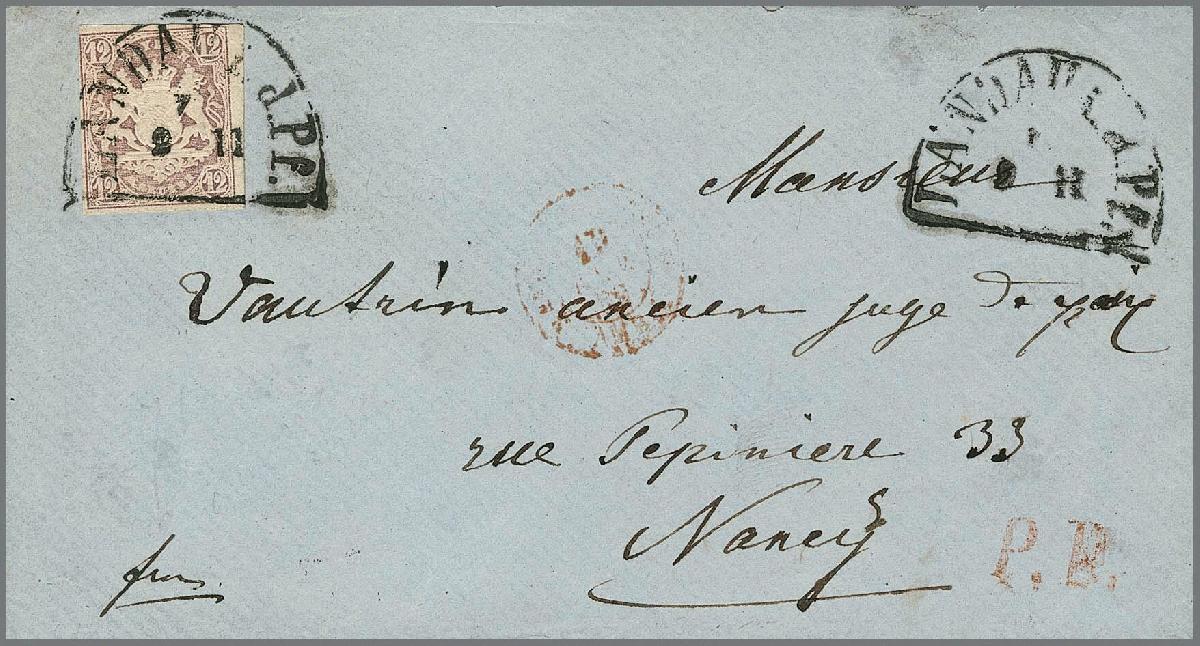 12 12
12 12
LANDAU I. D. PF.
7
2 11
LANDAU
Monsieur
Vautrin ancien juge de paix
rue Pepiniere 33
Nancy
P. D.